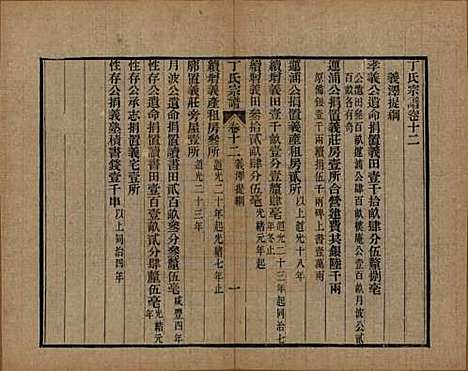 丁氏宗譜卷十二
義澤提綱
孝義公遺命捐置義田壹千拾畝肆分伍釐捌毫
蓮浦公捐置義莊房壹所合營建費共銀陸千兩
原備銀壹千兩碑上書壹萬兩
蓮浦公捐置義產租房貳所
以上道光十八年
續製義田壹千畝壹分壹釐肆毫
道光二十三年起同治七年冬止
續製義田叁拾貳畝肆分伍毫
光緒元年起
丁氏宗譜
卷十二
義澤提綱
一
續製義產租房叁所
道光二十一年起光緒七年止
廓置義莊旁屋壹所
道光二十三年
月波公遺命捐置讀書田貳百畝叁分叁釐伍毫
咸豐四年
性存公遺命捐置讀書田壹百壹畝貳分肆釐伍毫
光緒元年
性存公承志捐置義宅壹所
性存公捐義塾積書錢壹千串
以上同治四年